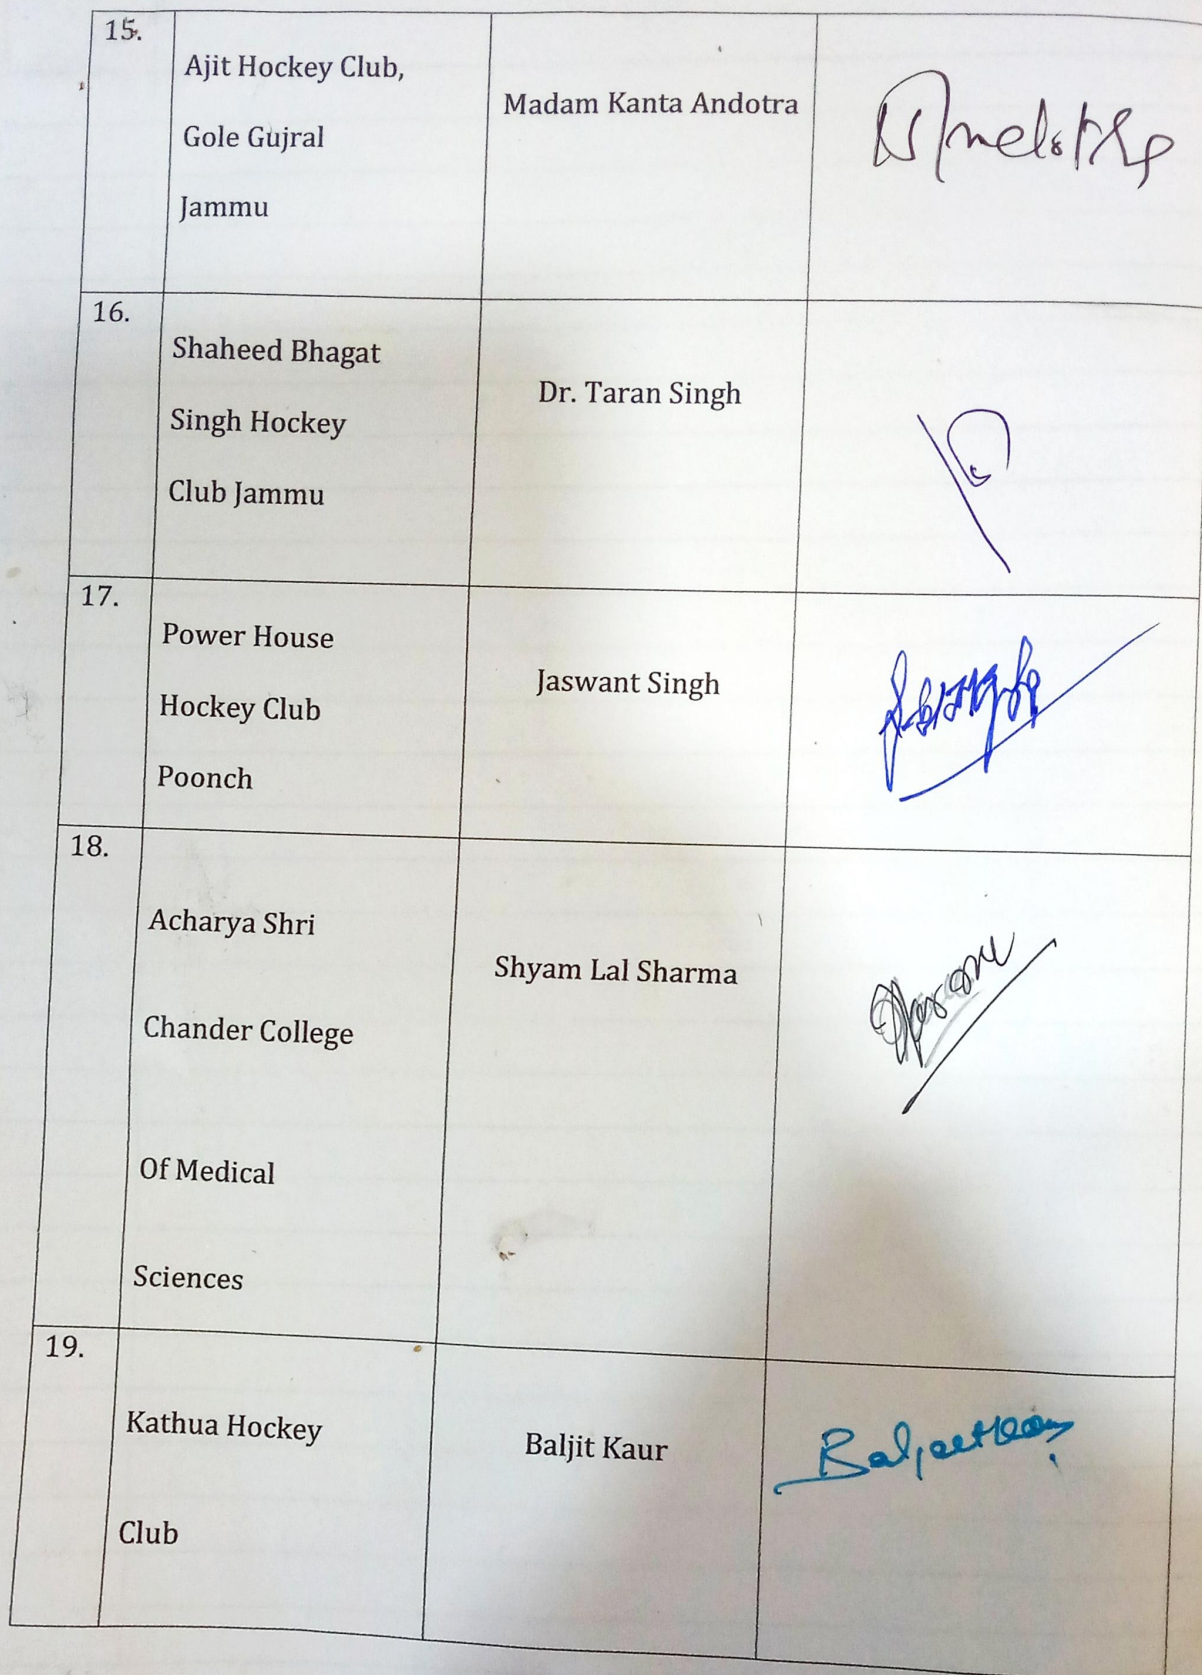 15.
Ajit Hockey Club,
Gole Gujral
Jammu
Madam Kanta Andotra
16.
Shaheed Bhagat
Singh Hockey
Club Jammu
Dr. Taran Singh
17.
Power House
Hockey Club
Poonch
Jaswant Singh
18.
Acharya Shri
Chander College
Of Medical
Sciences
Shyam Lal Sharma
19.
Kathua Hockey
Club
Baljit Kaur